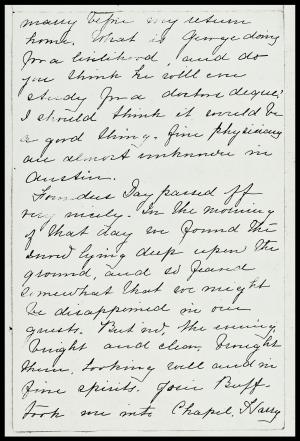 marry before my return
home. What is George doing
for a livelihood, and do
you think he will ever
study for a doctors degree?
I should think it would be
a good thing. Fine physicians
are almost unknown in
Austin.
Founders Day passed off
very nicely. In the morning
of that day we found the
snow lying deep upon the
ground, and so feared
somewhat that we might
be disappointed in our
guests. But no, the evening,
bright and clear, brought
them, looking well and in
fine spirits. Buff-
took me into Chapel, Harry